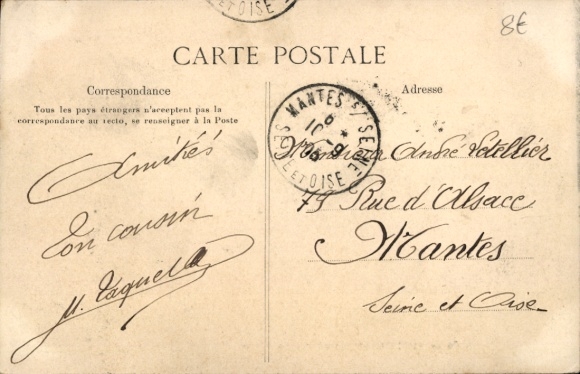 ET OISE
8€
CARTE POSTALE
Correspondance
Tous les pays étrangers n'acceptent pas la
correspondance au recto, se renseigner à la Poste
Adresse
MANTES S/ SEINE
SEINE ET OISE
Amitiés
Ton cousin
Monsieur André Letellier
79 Rue d'Alsace
Mantes
Seine et Oise